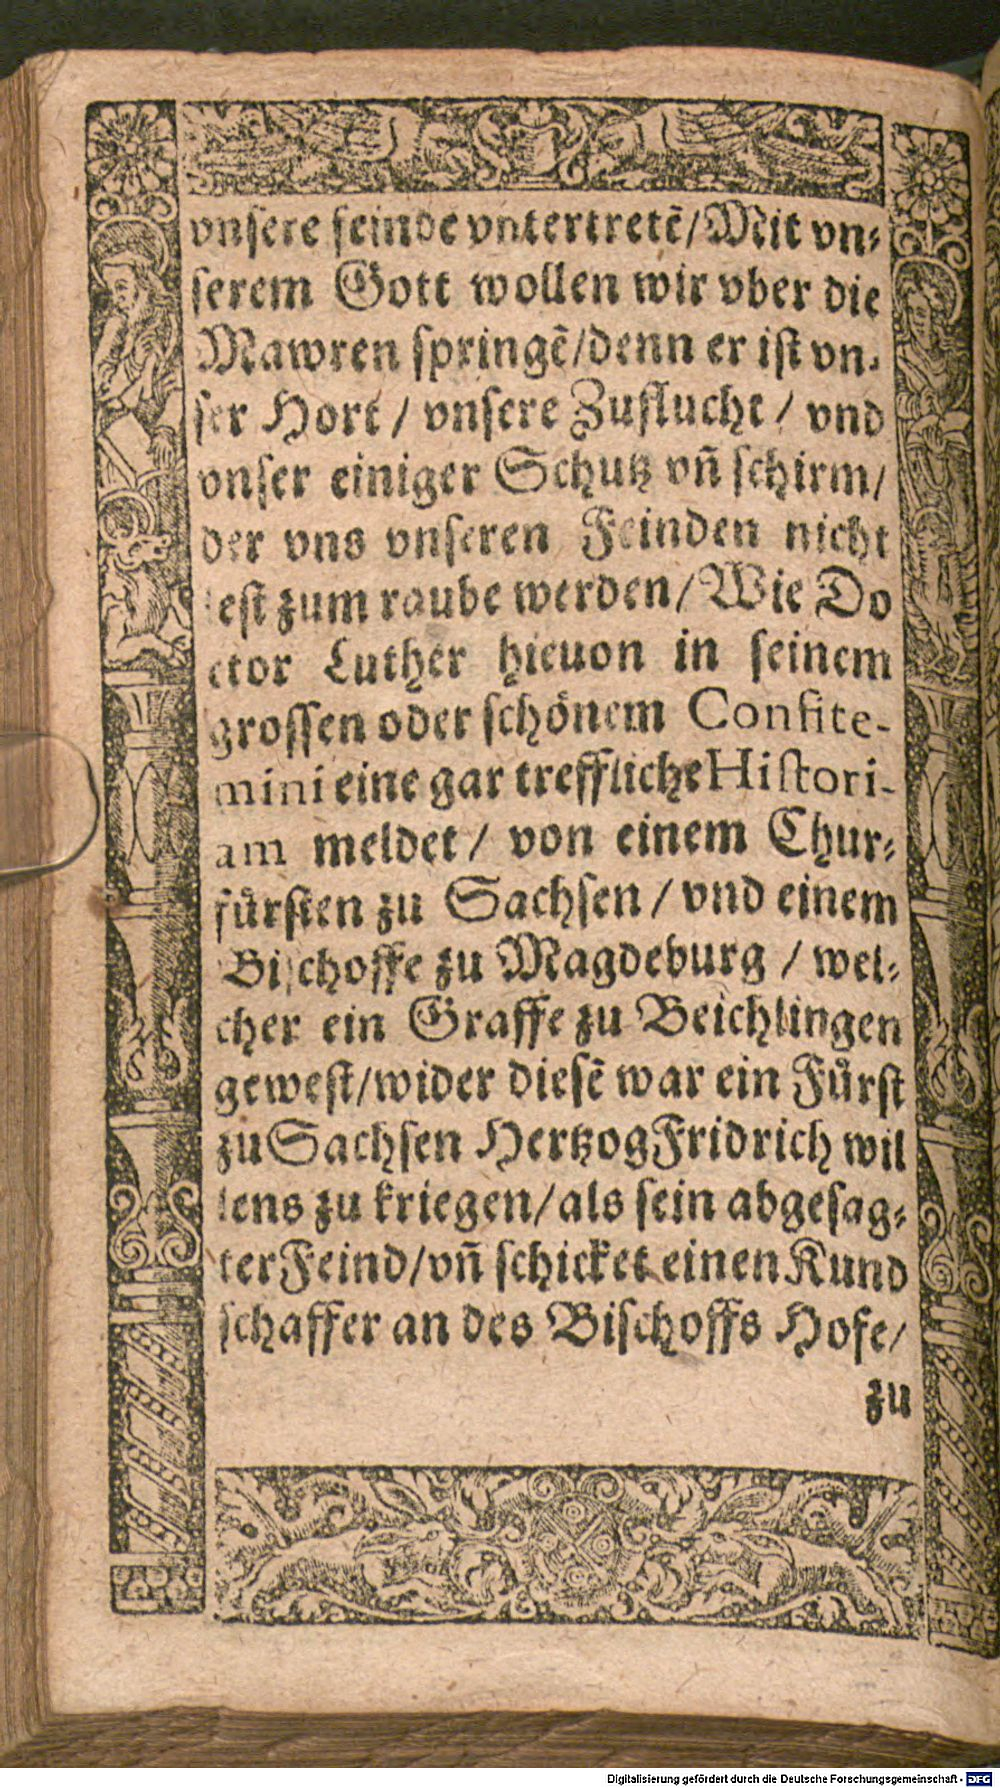 vnsere feinde vntertretẽ/Mit vn⸗
serem Gott wollen wir vber die
Mawren springẽ/denn er ist vn⸗
ser Hort / vnsere Zuflucht / vnd
vnser einiger Schutz vñ schirm/
der vns vnseren Feinden nicht
lest zum raube werden/Wie Do
ctor Luther hieuon in seinem
grossen oder schönem Confite-
mini eine gar treffliche Histori-
am meldet / von einem Chur⸗
fürsten zu Sachsen / vnd einem
Bischoffe zu Magdeburg / wel⸗
cher ein Graffe zu Beichlingen
gewest/wider diesẽ war ein Fürst
zu Sachsen Hertzog Fridrich wil
lens zu kriegen/als sein abgesag⸗
ter Feind/vñ schicket einen Kund
schaffer an des Bischoffs Hofe/
zu
Digitalisierung gefördert durch die Deutsche Forschungsgemeinschaft - DFG